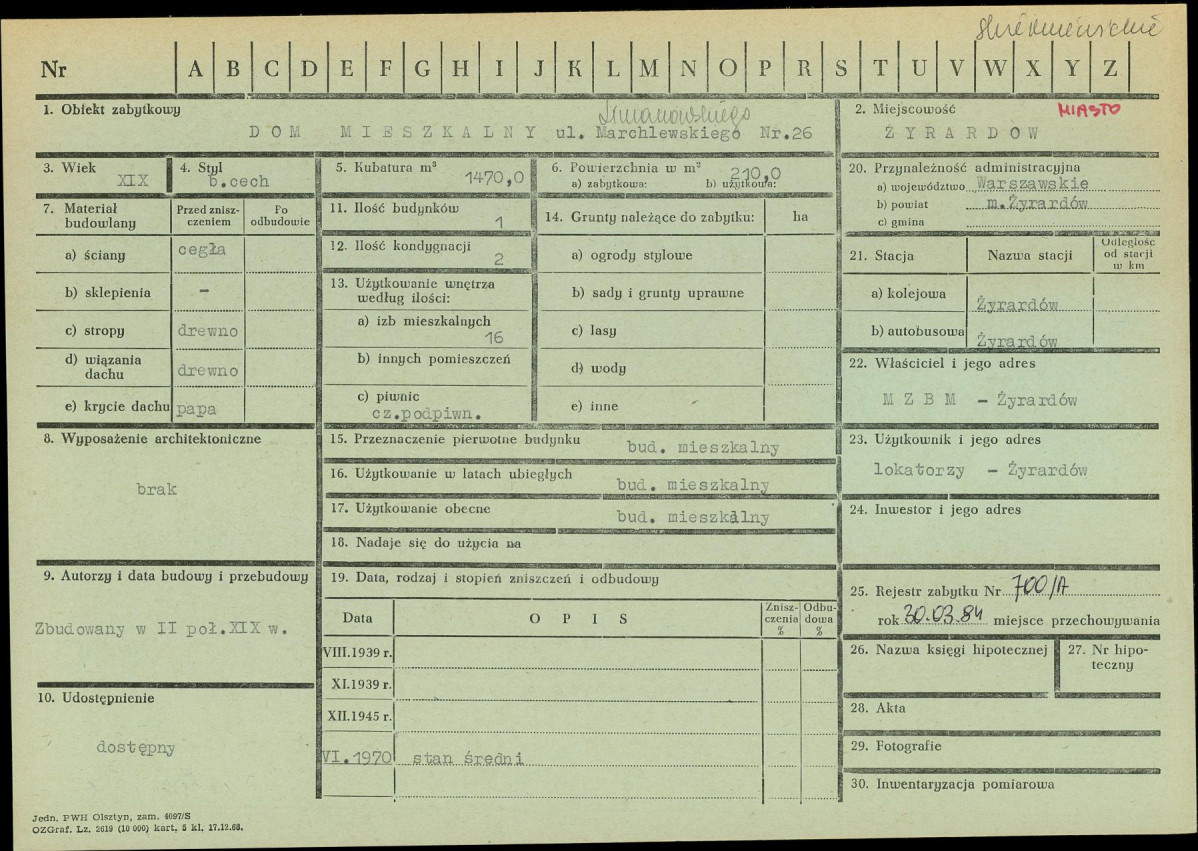 Skierniewickie
Nr A B C D E F G H I J K L M N O P R S T U V W X Y Z
1. Obiekt zabytkowy
Limanowskiego
DOM MIESZKALNY ul. Marchlewskiego Nr.26
2. Miejscowość MIASTO
ŻYRARDOW
3. Wiek
XIX
4. Styl
b.cech
5. Kubatura m³
1470,0
6. Powierzchnia w m²
210,0
a) zabytkowa: b) użytkowa:
7. Materiał budowlany
Przed zniszczeniem
Po odbudowie
a) ściany cegła
b) sklepienia –
c) stropy drewno
d) wiązania dachu drewno
e) krycie dachu papa
8. Wyposażenie architektoniczne
brak
9. Autorzy i data budowy i przebudowy
Zbudowany w II poł.XIX w.
10. Udostępnienie
dostępny
11. Ilość budynków
1
12. Ilość kondygnacji
2
13. Użytkowanie wnętrza
według ilości:
a) izb mieszkalnych
16
b) innych pomieszczeń
c) piwnic
cz.podpiwn.
14. Grunty należące do zabytku: ha
a) ogrody stylowe
b) sady i grunty uprawne
c) lasy
d) wody
e) inne
15. Przeznaczenie pierwotne budynku
bud. mieszkalny
16. Użytkowanie w latach ubiegłych
bud. mieszkalny
17. Użytkowanie obecne
bud. mieszkalny
18. Nadaje się do użycia na
19. Data, rodzaj i stopień zniszczeń i odbudowy
Data OPIS Zniszczenia % Odbudowa %
VIII.1939 r.
XI.1939 r.
XII.1945 r.
VI.1970 stan średni
20. Przynależność administracyjna
a) województwo Warszawskie
b) powiat m.Żyrardów
c) gmina
21. Stacja Nazwa stacji Odległość od stacji w km
a) kolejowa Żyrardów
b) autobusowa Żyrardów
22. Właściciel i jego adres
M Z B M – Żyrardów
23. Użytkownik i jego adres
lokatorzy – Żyrardów
24. Inwestor i jego adres
25. Rejestr zabytku Nr 700/A
rok 30.03.84 miejsce przechowywania
26. Nazwa księgi hipotecznej
27. Nr hipoteczny
28. Akta
29. Fotografie
30. Inwentaryzacja pomiarowa
Jedn. PWH Olsztyn, zam. 4097/S
OZGraf. Lz. 2619 (10 000) kart. 5 kl. 17.12.68.